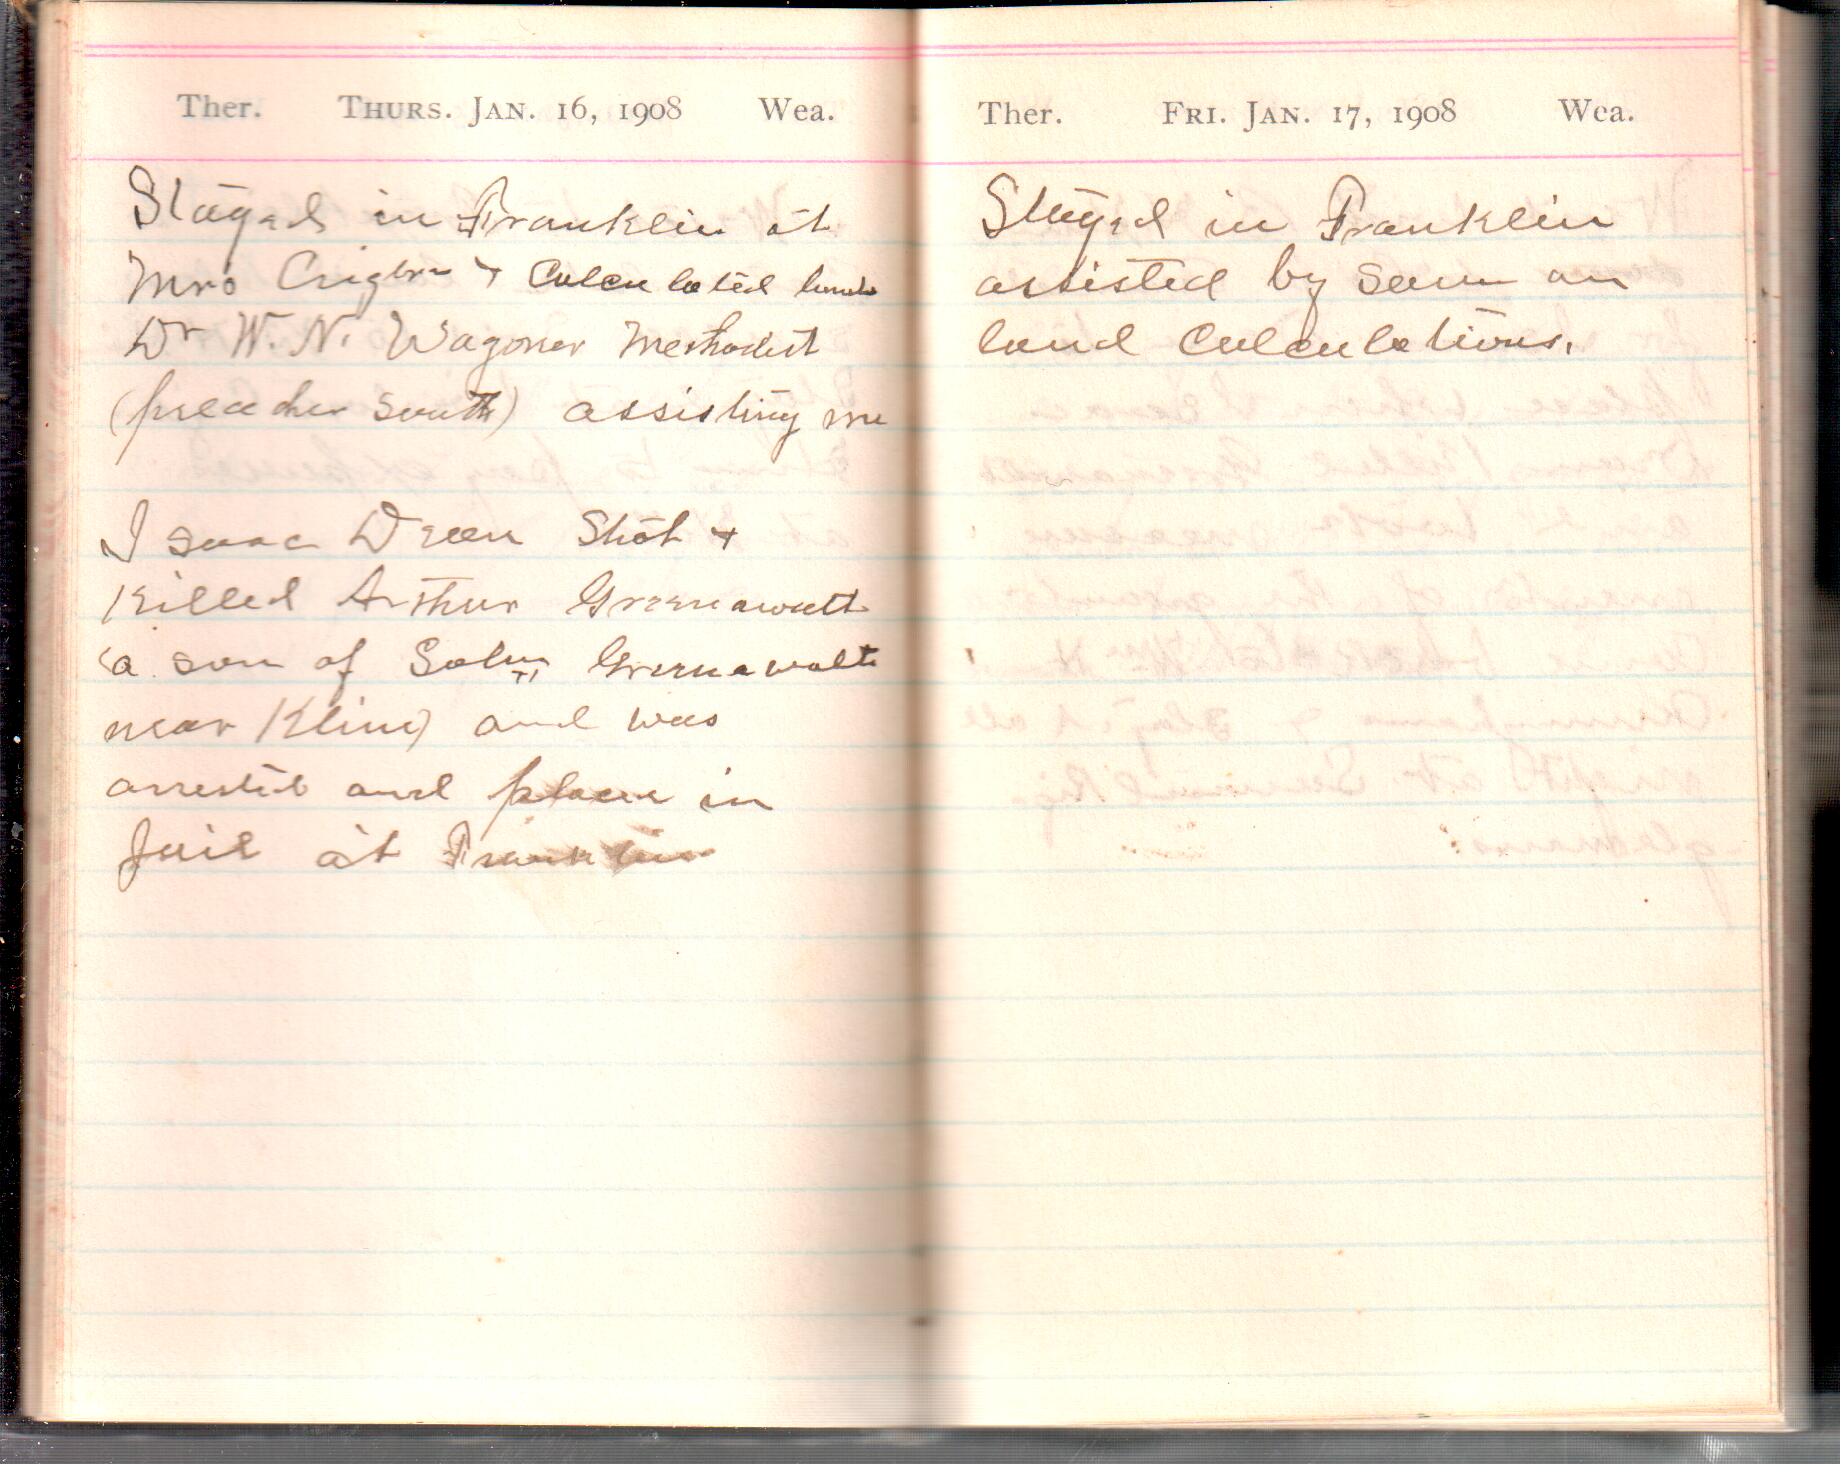 Ther. THURS. JAN. 16, 1908 Wea.
Stayed in Franklin at
Mrs + Calculated lands
Dr W. N. Wagoner Methodist
(preacher south) assisting me
Isaac Dreen Shot +
Killed Arthur Greenawalt
(a son of Greenawalt
near Kline) and was
arrested and place in
Jail at Franklin
Ther. FRI. JAN. 17, 1908 Wea.
Stayed in Franklin
assisted by same on
land Calculations.